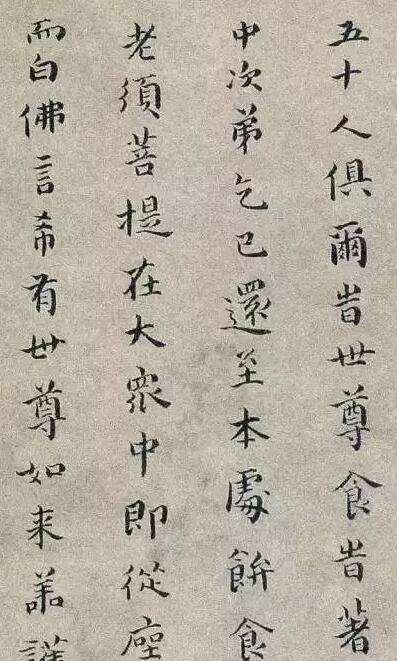 五十人俱爾旹世尊食旹著
中次弟乞已還至本處餅食
老須菩提在大衆中即從座
而白佛言希有世尊如来善護